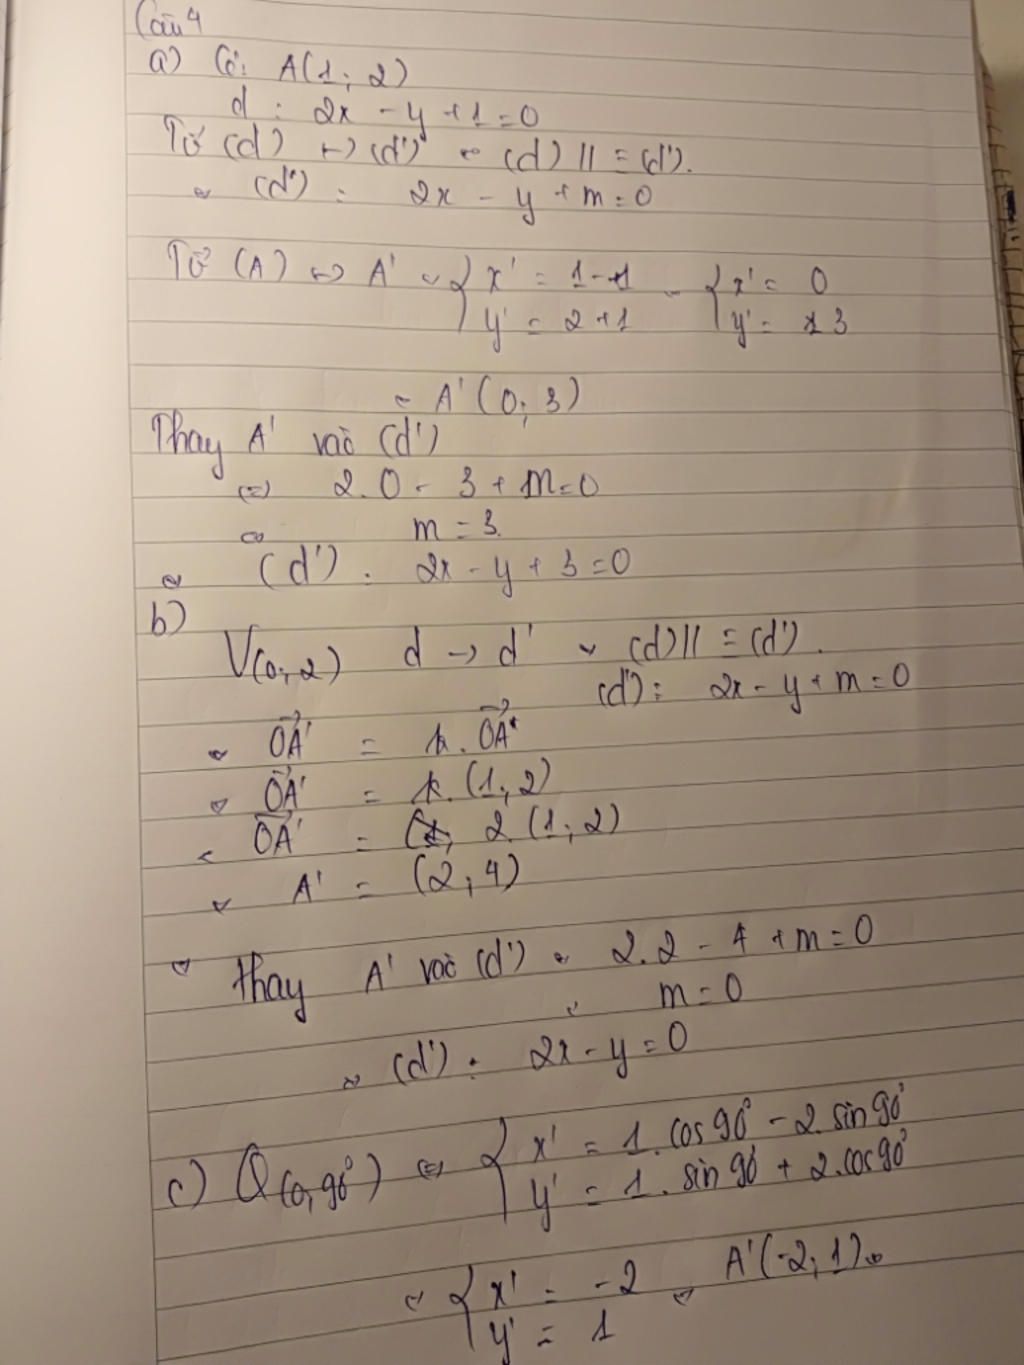 Câu 4
a) Có: A(1; 2)
d : 2x - y + 1 = 0
Từ (d) ↔ (d') ⇔ (d) // ≡ (d').
⇔ (d') : 2x - y + m = 0
Từ (A) ↔ A' ⇔ { x' = 1 - 1 ⇔ { x' = 0
y' = 2 + 1 y' = 3
⇔ A' (0; 3)
Thay A' vào (d')
(=) 2.0 - 3 + m = 0
⇔ m = 3.
⇔ (d') : 2x - y + 3 = 0
b)
V(0; 2) d → d' ⇔ (d) // ≡ (d').
(d') : 2x - y + m = 0
⇔ OA' = k. OA
⇔ OA' = k. (1; 2)
⇔ OA' = 2. (1; 2)
⇔ A' = (2; 4)
⇔ thay A' vào (d') ⇔ 2.2 - 4 + m = 0
⇔ m = 0
⇔ (d') : 2x - y = 0
c) Q(0, 90°) ⇔ { x' = 1. cos 90° - 2. sin 90°
y' = 1. sin 90° + 2. cos 90°
⇔ { x' = -2 ⇔ A' (-2; 1).
y' = 1